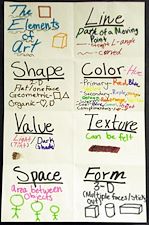 The
Elements
of
Art
Line
Path of a Moving
Point
Straight L-angle
curved
Shape
2-D
Flat/one Face
Geometric-
Organic-
Color
Hue
Primary-Red Blue
Secondary-
Value
Light
(Tint)
Dark
Shade
Texture
Can be felt
Space
Area between
Objects
Form
3-D
(Multiple Faces/Sticks
out